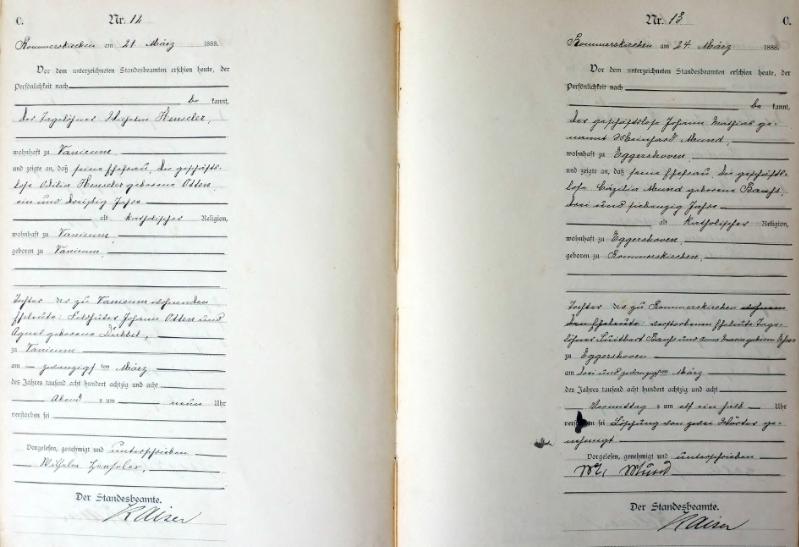 C.
Nr. 12
Rommerskirchen am 21 März 1888.
Vor dem unterzeichneten Standesbeamten erschien heute, der
Persönlichkeit nach
be kannt,
der Tagelöhner Wilhelm
wohnhaft zu Vanikum
und zeigte an, daß seine Ehefrau, die geschäfts-
lose geborene Otten,
ein und dreißig Jahre
alt katholischer Religion,
wohnhaft zu Vanikum,
geboren zu Vanikum,
Tochter der zu Vanikum wohnenden
Eheleute: Johann Otten und
Agnes geborene
zu Vanikum
am zwanzigsten März
des Jahres tausend acht hundert achtzig und acht
Abend s um neun Uhr
verstorben sei
Vorgelesen, genehmigt und unterschrieben
Wilhelm
Der Standesbeamte.
Kaiser
Nr. 13
C.
Rommerskirchen am 24 März 1888.
Vor dem unterzeichneten Standesbeamten erschien heute, der
Persönlichkeit nach
be kannt,
der geschäftslose Johann Mathias ge-
nannt Meinhard Mund,
wohnhaft zu Eggershoven
und zeigte an, daß seine Ehefrau die geschäfts-
lose Cäzilia Mund geborene
drei und siebenzig Jahre
alt katholischer Religion,
wohnhaft zu Eggershoven,
geboren zu Rommerskirchen,
Tochter der zu Rommerskirchen wohnen
den Eheleute verstorbenen Eheleute Tage-
löhner und
zu Eggershoven
am drei und zwanzigsten März
des Jahres tausend acht hundert achtzig und acht
Vormittag s um elf ein halb Uhr
verstorben sei Löschung von zwei Wörter ge-
nehmigt
Vorgelesen, genehmigt und unterschrieben
Mund
Der Standesbeamte.
Kaiser